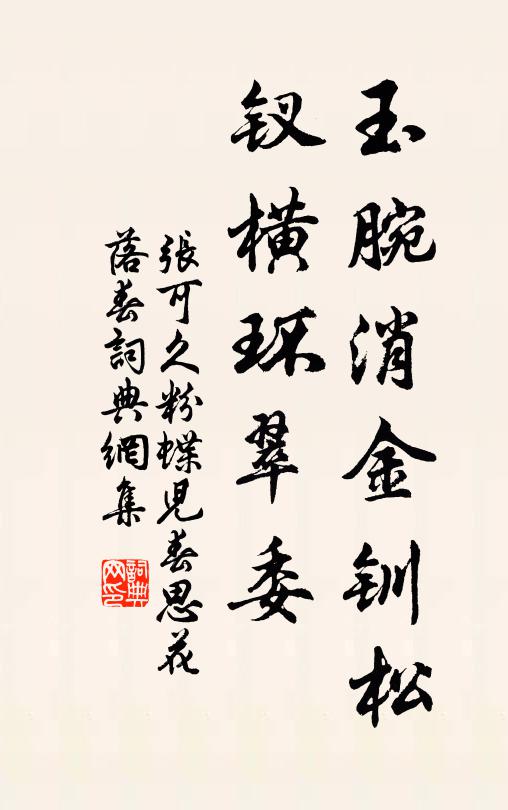 玉腕消金钏松
钗横环翠委
張可久粉蝶児春思花
落春詞典網集
詞典
网印